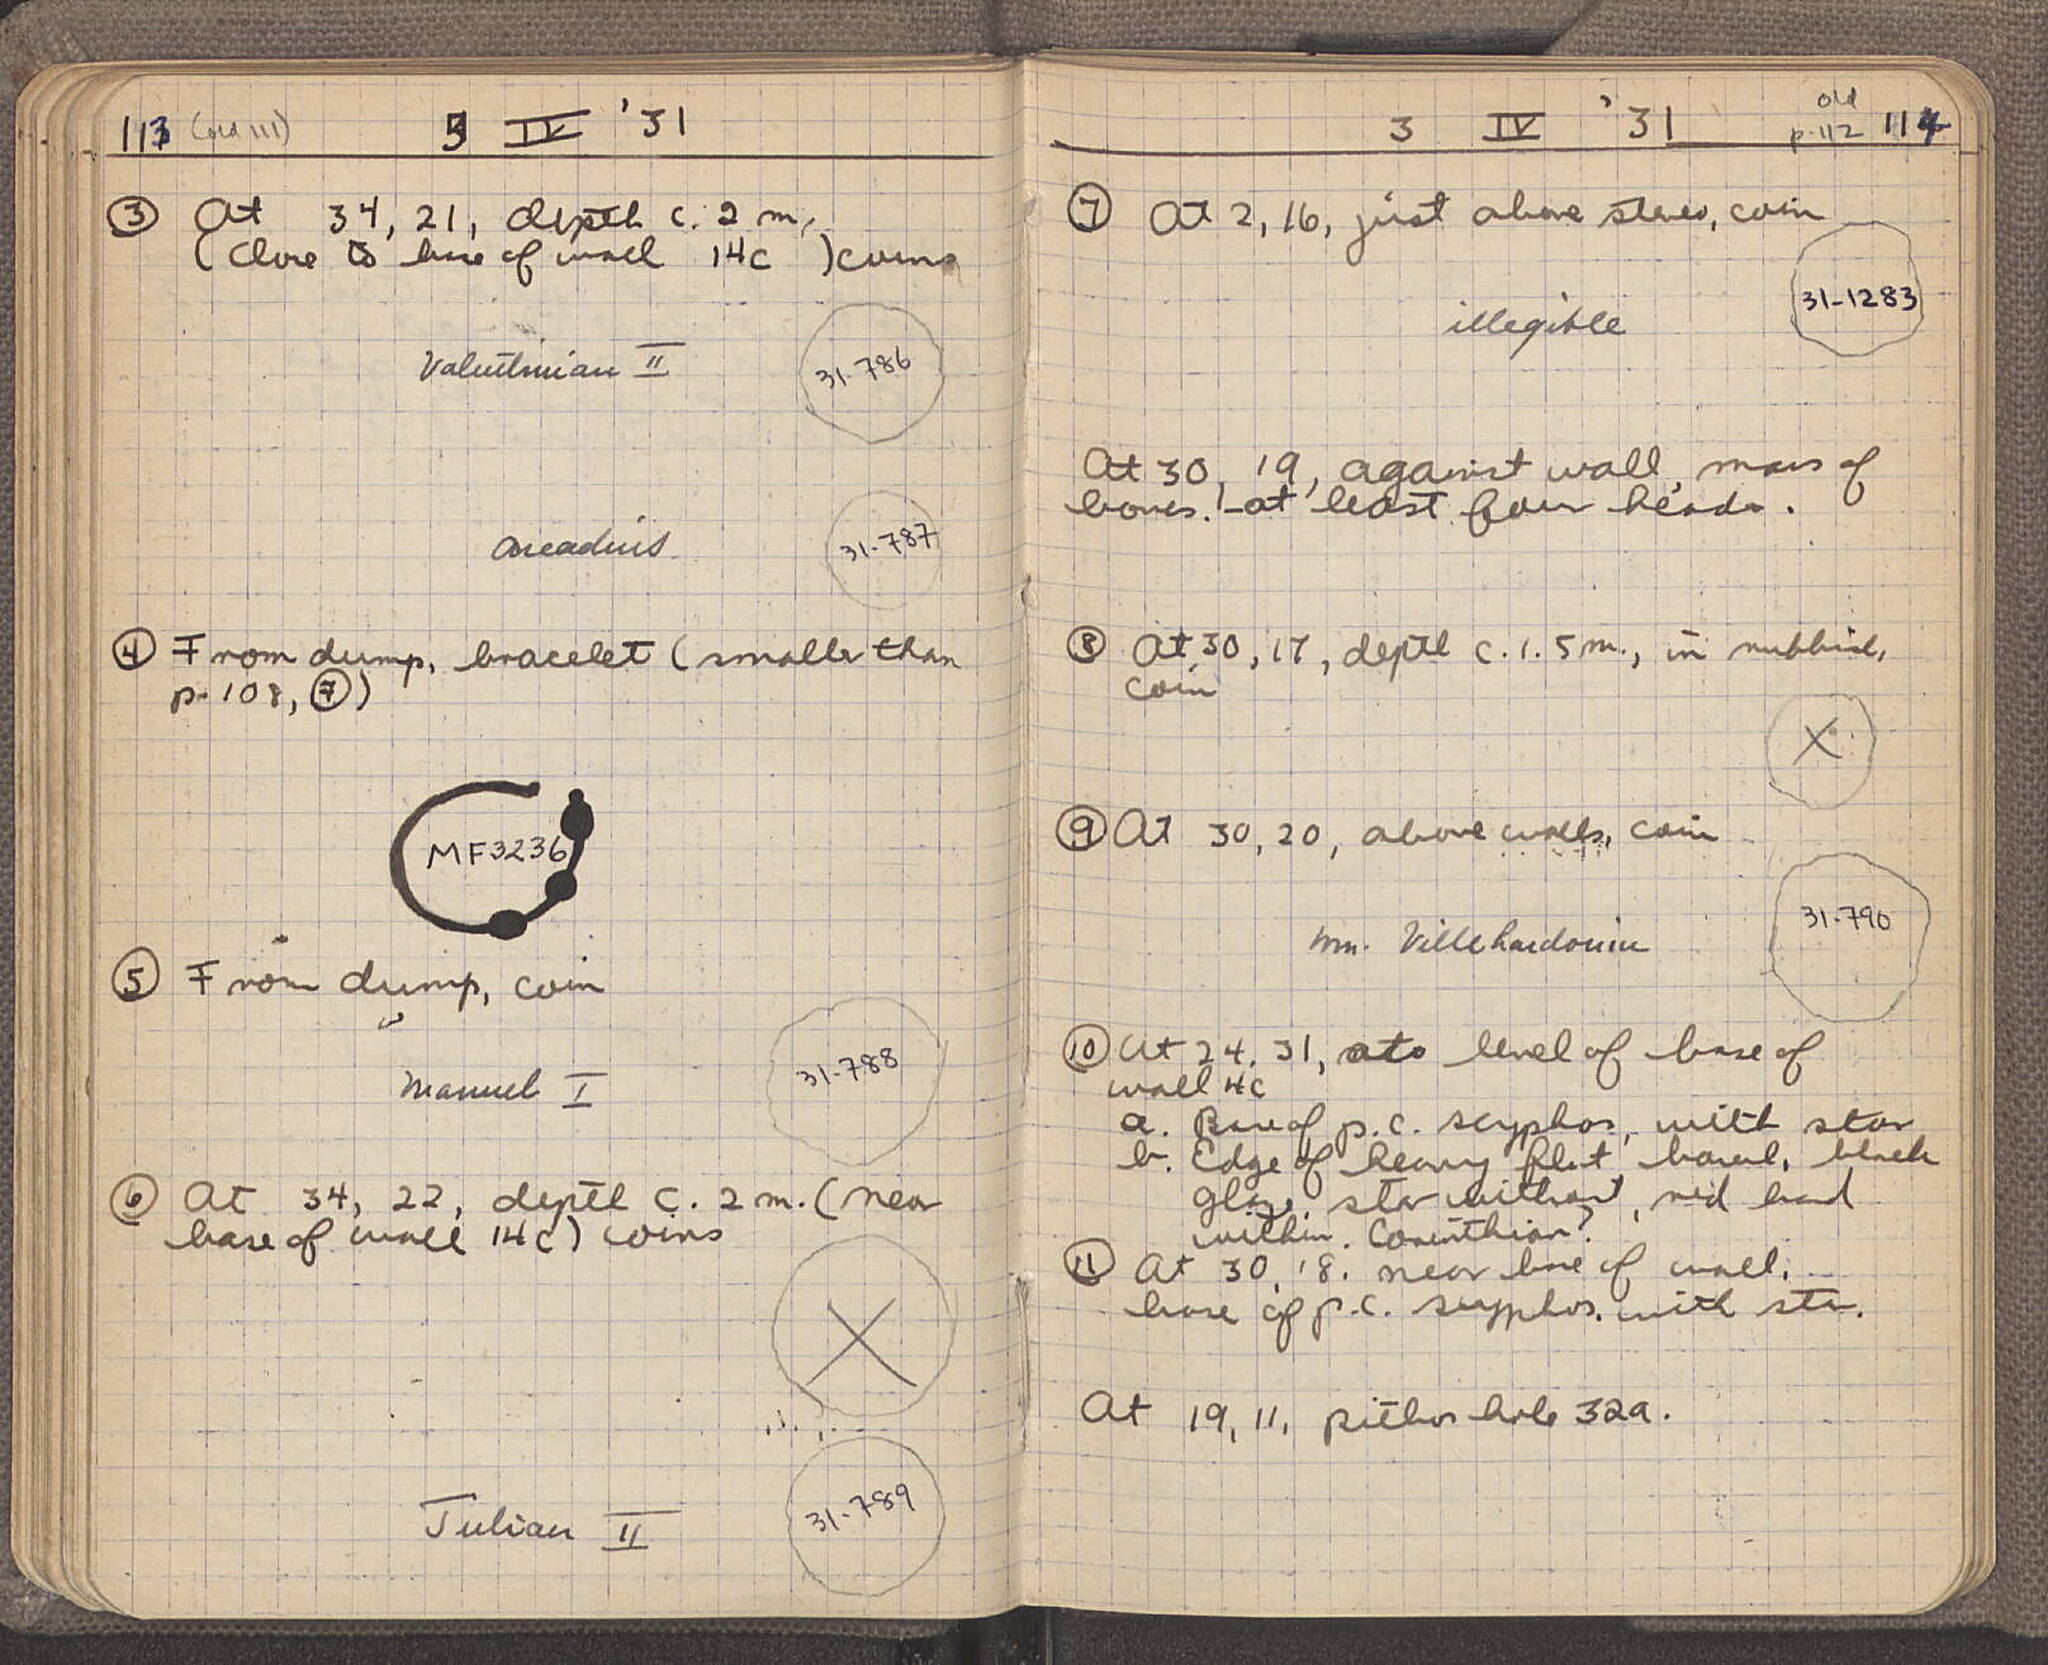 113 (old 111) 3 IV '31
③ At 34, 21, depth c. 2 m,
(Close to base of wall 14c) coins
Valentinian II 31-786
Arcadius 31-787
④ From dump, bracelet (smaller than
p. 108, ⑦)
MF3236
⑤ From dump, coin
Manuel I 31-788
⑥ At 34, 22, depth c. 2 m. (near
base of wall 14c) coins
X
Julian II 31-789
3 IV '31 old p. 112 114
⑦ At 2, 16, just above stereo, coin
31-1283
illegible
At 30, 19, against wall, mass of
bones. - at least four heads.
⑧ At 30, 17, depth c. 1.5 m., in rubbish,
coin
X
⑨ At 30, 20, above walls, coin
Wm. Villehardouin 31-790
⑩ At 24, 31, at level of base of
wall 4c
a. Base of p.c. scyphos, with star
b. Edge of heavy flat bowl, black
glaze, star without, red band
within. Corinthian?
⑪ At 30, 18, near base of wall,
base of p.c. scyphos, with star.
At 19, 11, pithos hole 32a.